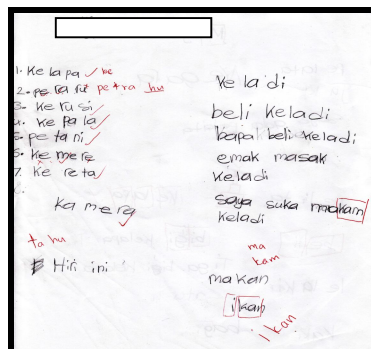 1. Ke la pa be
2. pe ra hu pe tra hu
3. Ke ru si
4. Ke pa la
5. pe ta ni
6. Ke me re
7. Ke re ta
Ka me ra
ta hu
Hiri ini
Ke la di
beli keladi
bapai beli keladi
emak masak
keladi
saya suka makan
keladi
ma
kam
makan
i kan
i kan